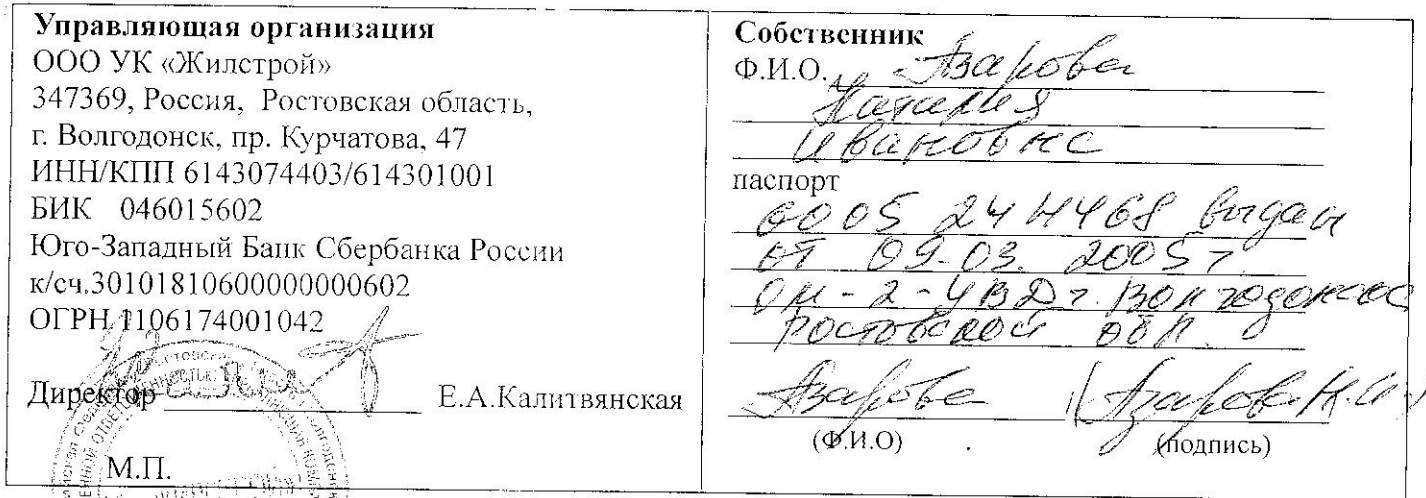 Управляющая организация
ООО УК «Жилстрой»
347369, Россия, Ростовская область,
г. Волгодонск, пр. Курчатова, 47
ИНН/КПП 6143074403/614301001
БИК 046015602
Юго-Западный Банк Сбербанка России
к/сч.30101810600000000602
ОГРН 1106174001042
Директор Е.А.Калитвянская
М.П.
Собственник
Ф.И.О. Азарова
Наталия
Ивановна
паспорт
6005 244468 выдан
от 09.03. 2005г
ОМ-2-УВД г. Волгодонска
Ростовской обл.
Азарова (Азарова Н.И.)
(Ф.И.О) (подпись)